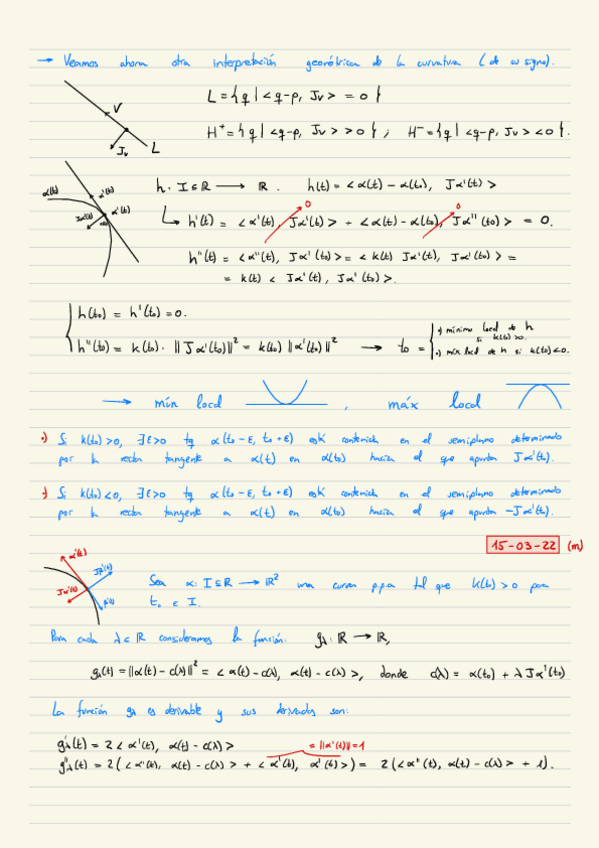 → Veamos ahora otra interpretación geométrica de la curvatura (de su signo).
L = { q | <q-p, Jv> = 0 }
V
H⁺ = { q | <q-p, Jv> > 0 } ; H⁻ = { q | <q-p, Jv> < 0 }.
Jv L
h: I ⊆ ℝ → ℝ. h(t) = <α(t) - α(t₀), Jα'(t) >
α(t) α'(t) Jα'(t) α'(t)
h'(t) = <α'(t), Jα'(t) > + <α(t) - α(t₀), Jα''(t₀) > = 0.
0 0
h''(t) = <α''(t), Jα'(t₀) > = <k(t) Jα'(t), Jα'(t₀) > =
= k(t) < Jα'(t), Jα'(t₀) >.
h(t₀) = h'(t₀) = 0.
h''(t₀) = k(t₀) · ||Jα'(t₀)||² = k(t₀) ||α'(t₀)||² → t₀ = { •) mínimo local de h si k(t₀)>0. •) máx local de h si k(t₀)<0.
→ mín local , máx local
•) Si k(t₀) > 0, ∃ε>0 tq α(t₀-ε, t₀+ε) está contenida en el semiplano determinado
por la recta tangente a α(t) en α(t₀) hacia el que apunta Jα'(t).
•) Si k(t₀) < 0, ∃ε>0 tq α(t₀-ε, t₀+ε) está contenida en el semiplano determinado
por la recta tangente a α(t) en α(t₀) hacia el que apunta -Jα'(t).
15-03-22 (m)
α'(t)
Sea α: I ⊆ ℝ → ℝ² una curva p.p.a tal que k(t₀) > 0 para
Jα'(t)
t₀ ∈ I.
Para cada λ ∈ ℝ consideramos la función: gλ: ℝ → ℝ,
gλ(t) = ||α(t) - c(λ)||² = <α(t) - c(λ), α(t) - c(λ) >, donde c(λ) = α(t₀) + λJα'(t₀)
La función gλ es derivable y sus derivadas son:
g'λ(t) = 2 <α'(t), α(t) - c(λ) >
= ||α'(t)|| = 1
g''λ(t) = 2 ( <α''(t), α(t) - c(λ) > + <α'(t), α'(t) > ) = 2 ( <α''(t), α(t) - c(λ) > + 1 ).